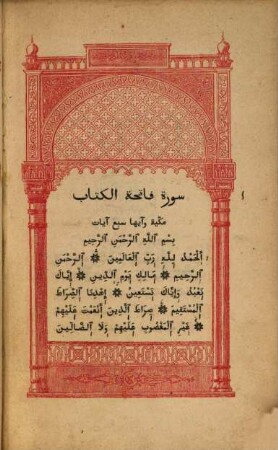 سورة فاتحة الكتاب
مكية وآيها سبع آيات
بِسْمِ اللهِ الرَّحْمَنِ الرَّحِيمِ
اَلْحَمْدُ لِلّهِ رَبِّ الْعَالَمِينَ ۞ الرَّحْمَنِ
الرَّحِيمِ ۞ مَالِكِ يَوْمِ الدِّينِ ۞ إِيَّاكَ
نَعْبُدُ وَإِيَّاكَ نَسْتَعِينُ ۞ اِهْدِنَا الصِّرَاطَ
الْمُسْتَقِيمَ ۞ صِرَاطَ الَّذِينَ أَنْعَمْتَ عَلَيْهِمْ
۞ غَيْرِ الْمَغْضُوبِ عَلَيْهِمْ وَلَا الضَّالِّينَ